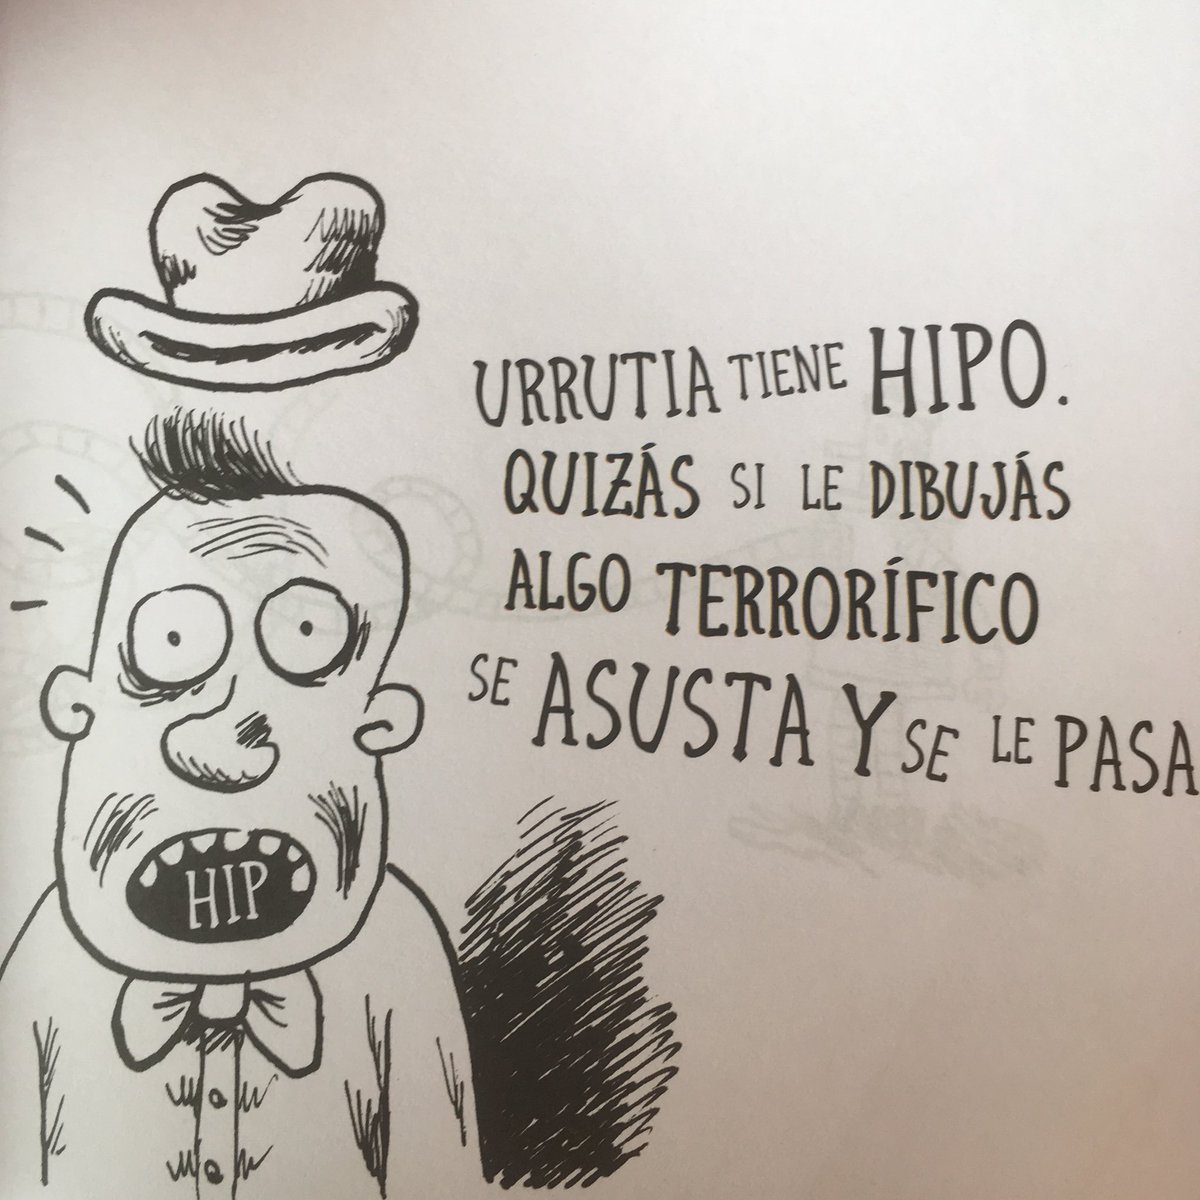 URRUTIA TIENE HIPO.
QUIZÁS SI LE DIBUJÁS
ALGO TERRORÍFICO
SE ASUSTA Y SE LE PASA
HIP